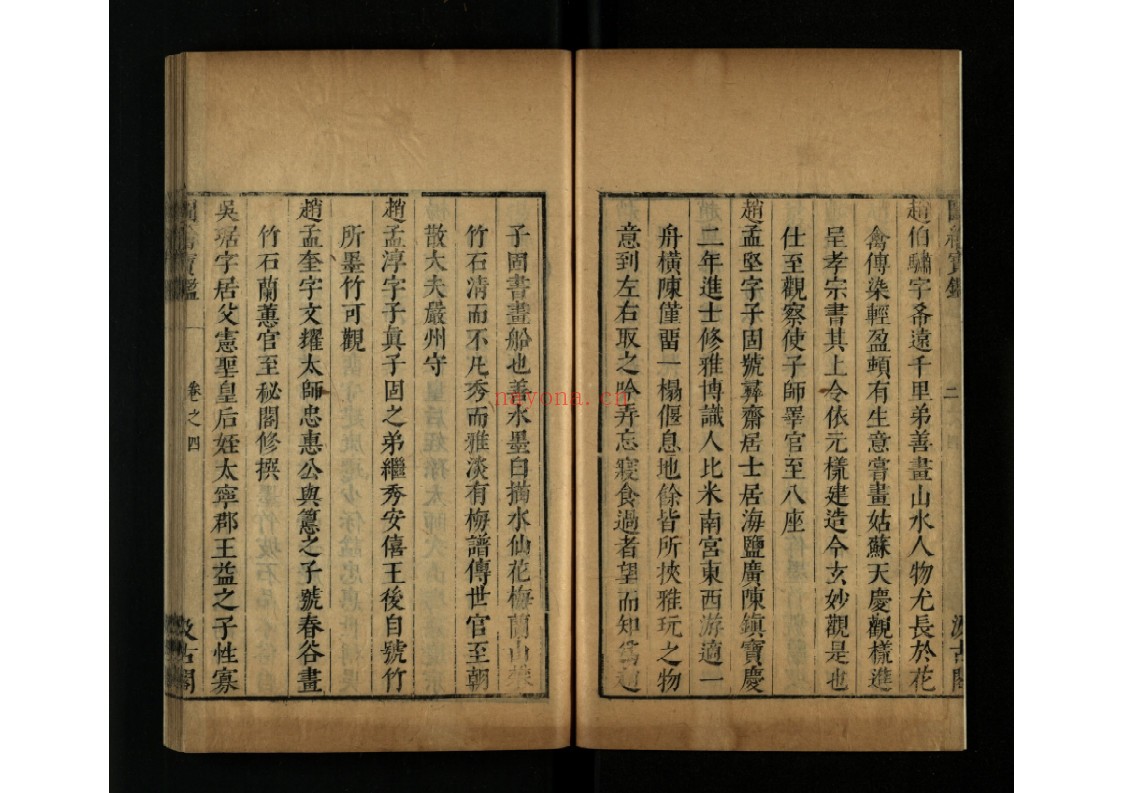 趙伯驌字希遠千里弟善畫山水人物尤長於花
禽傅染輕盈頓有生意嘗畫姑蘇天慶觀樣進
呈孝宗書其上令依元樣建造今玄妙觀是也
仕至觀察使子師睪官至八座
趙孟堅字子固號彝齋居士居海鹽廣陳鎮寶慶
二年進士修雅博識人比米南宮東西游適一
舟橫陳僅畱一榻偃息地餘皆所挾雅玩之物
意到左右取之吟弄忘寢食過者望而知爲趙
子固書畫船也善水墨白描水仙花梅蘭山礬
竹石清而不凡秀而雅淡有梅譜傳世官至朝
散大夫嚴州守
趙孟淳字子眞子固之弟繼秀安僖王後自號竹
所墨竹可觀
趙孟奎字文耀太師忠惠公與𥲅之子號春谷畫
竹石蘭蕙官至秘閣修撰
吳琚字居父憲聖皇后姪太寧郡王益之子性寡
圖繪寶鑑
卷之四
汲古閣
mayona.cn